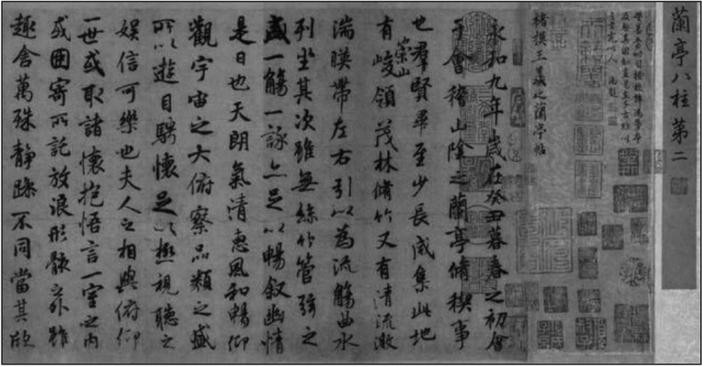 蘭亭八柱第二
褚摸王羲之蘭亭帖
永和九年歲在癸丑暮春之初會
于會稽山陰之蘭亭脩稧事
也羣賢畢至少長咸集此地
有崇山峻領茂林脩竹又有清流激
湍暎帶左右引以為流觴曲水
列坐其次雖無絲竹管弦之
盛一觴一詠亦足以暢敘幽情
是日也天朗氣清惠風和暢仰
觀宇宙之大俯察品類之盛
所以遊目騁懷足以極視聽之
娛信可樂也夫人之相與俯仰
一世或取諸懷抱悟言一室之內
或因寄所託放浪形骸之外雖
趣舍萬殊靜躁不同當其欣